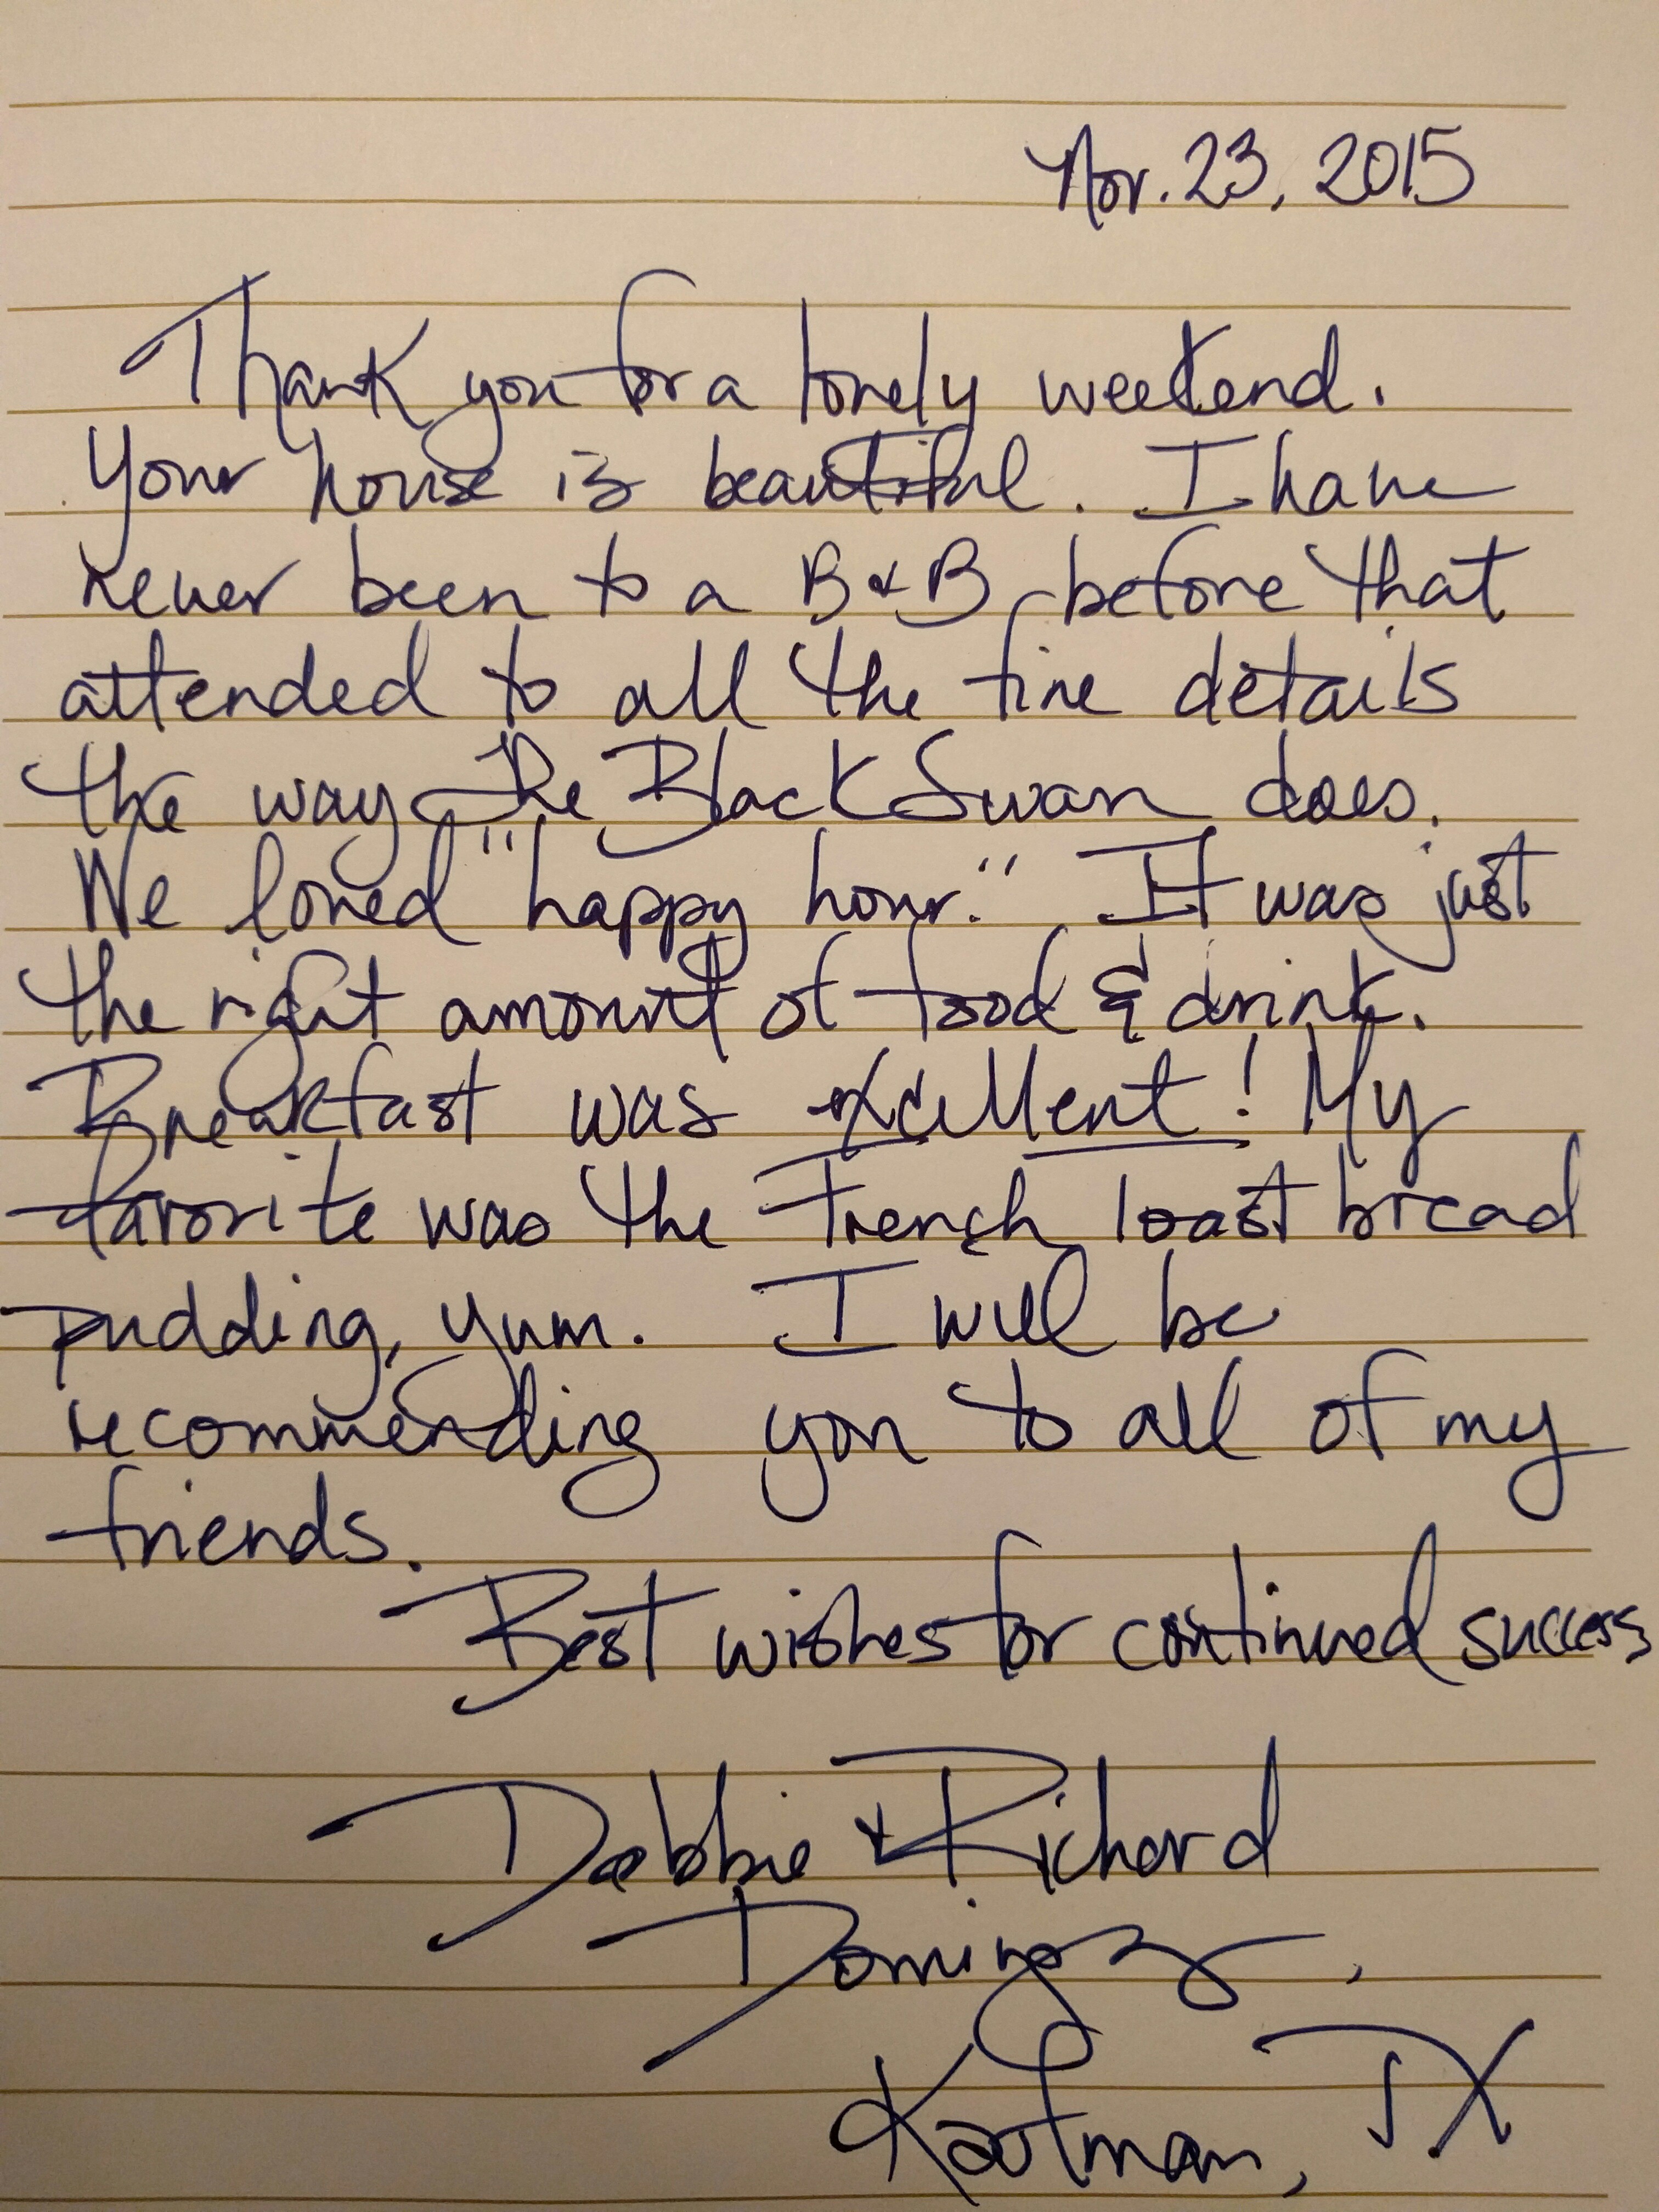 Nov. 23, 2015
Thank you for a lovely weekend.
Your house is beautiful. I have
never been to a B & B before that
attended to all the fine details
the way The Black Swan does.
We loved "happy hour." It was just
the right amount of food & drink.
Breakfast was excellent! My
favorite was the French toast bread
pudding, yum. I will be
recommending you to all of my
friends.
Best wishes for continued success
Debbie & Richard
Domingez,
Kaufman, TX